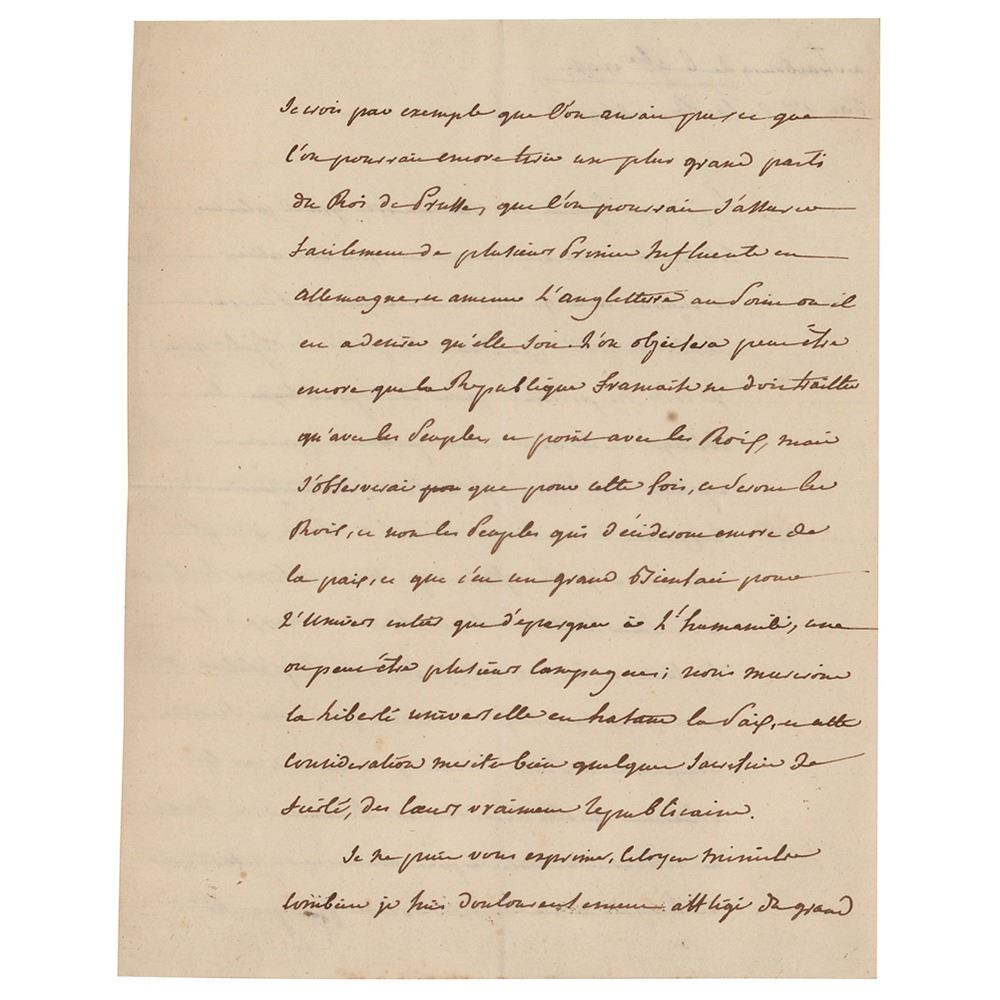 Je crois par exemple que l'on aurait pu, et que
l'on pourrait encore tirer un plus grand parti
du Roi de Prusse, que l'on pourrait s'assurer
facilement de plusieurs Princes influents en
allemagne, et amener l'angleterre au point où il
est à désirer qu'elle soit. L'on objectera peut être
encore que la République francaise ne doit traitter
qu'avec les Peuples, et point avec les Rois, mais
j'observerai que pour cette fois, ce seront les
Rois, et non les Peuples qui décideront encore de
la paix, et que c'est un grand Bienfait pour
L'univers entier que d'épargner à L'humanité, une
ou peut être plusieurs Campagnes; nous murirons
la Liberté universelle en hatant la Paix, et cette
consideration merite bien quelques sacrifices de
fierté, des Cœurs vraiment républicains.
Je ne puis vous exprimer, Citoyen Ministre
combien je suis douloureusement affligé du grand